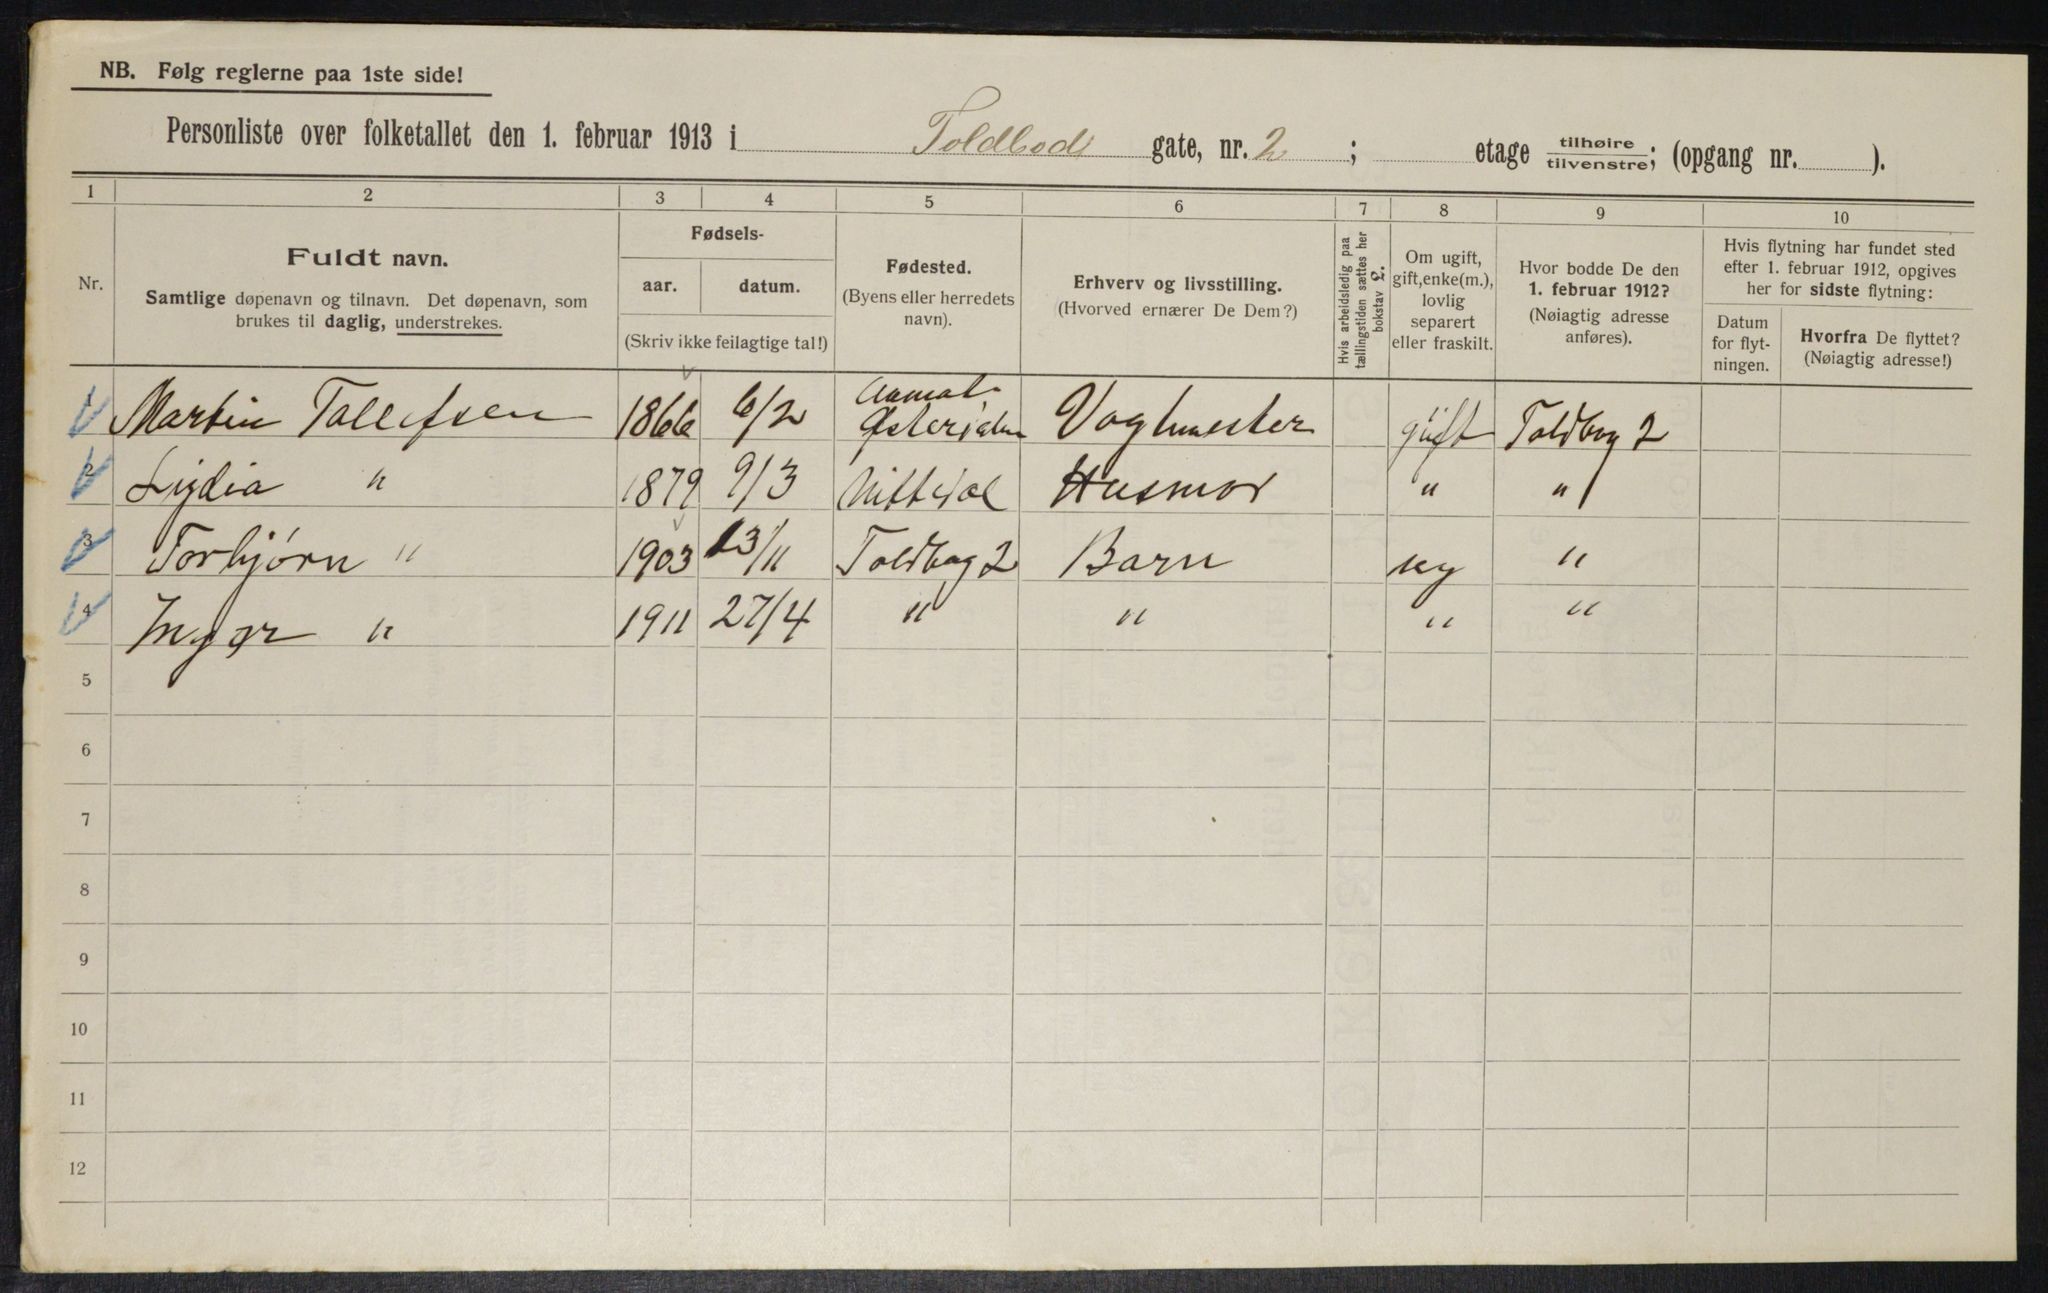 NB. Følg reglerne paa 1ste side!
Personliste over folketallet den 1. februar 1913 i Toldbod gate, nr. 2 ; etage tilhøire tilvenstre; (opgang nr. ).
1 2 3 4 5 6 7 8 9 10
Nr.
Fuldt navn.
Samtlige døpenavn og tilnavn. Det døpenavn, som
brukes til daglig, understrekes.
Fødsels-
aar. datum.
(Skriv ikke feilagtige tal!)
Fødested.
(Byens eller herredets
navn).
Erhverv og livsstilling.
(Hvorved ernærer De Dem?)
Hvis arbeidsledig paa
tællingstiden sættes her
bokstav L.
Om ugift,
gift, enke(m.),
lovlig
separert
eller fraskilt.
Hvor bodde De den
1. februar 1912?
(Nøiagtig adresse
anføres).
Hvis flytning har fundet sted
efter 1. februar 1912, opgives
her for sidste flytning:
Datum
for flyt-
ningen.
Hvorfra De flyttet?
(Nøiagtig adresse!)
1 Martin Tollefsen 1866 6/2 Aamot Østerdalen Vagtmester gift Toldbog 2
2 Lydia " 1879 9/3 Nittedal Husmor " "
3 Torbjørn " 1903 13/11 Toldbog 2 Barn ug "
4 Inger " 1911 27/4 " " " "
5
6
7
8
9
10
11
12